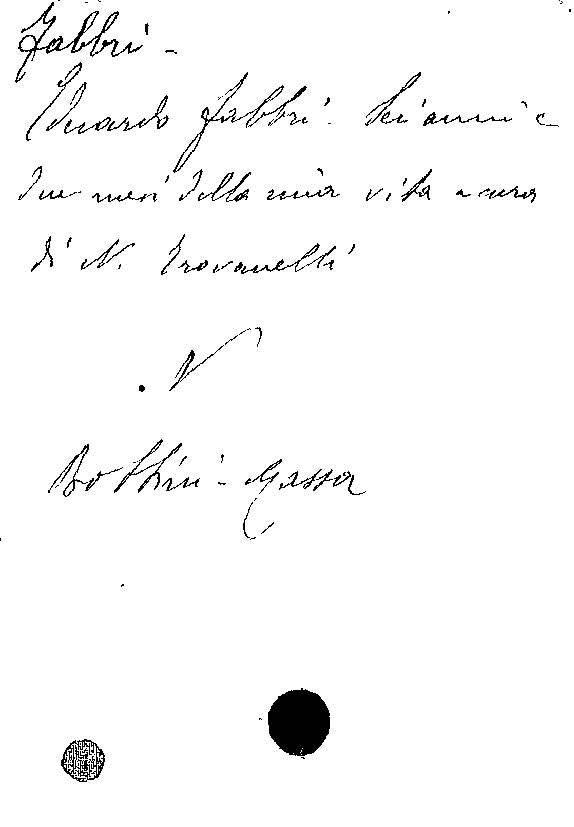 Fabbri -
Eduardo Fabbri. Sei anni e
due mesi della mia vita a cura
di N. Trovanelli
. N
Bottini - Massa